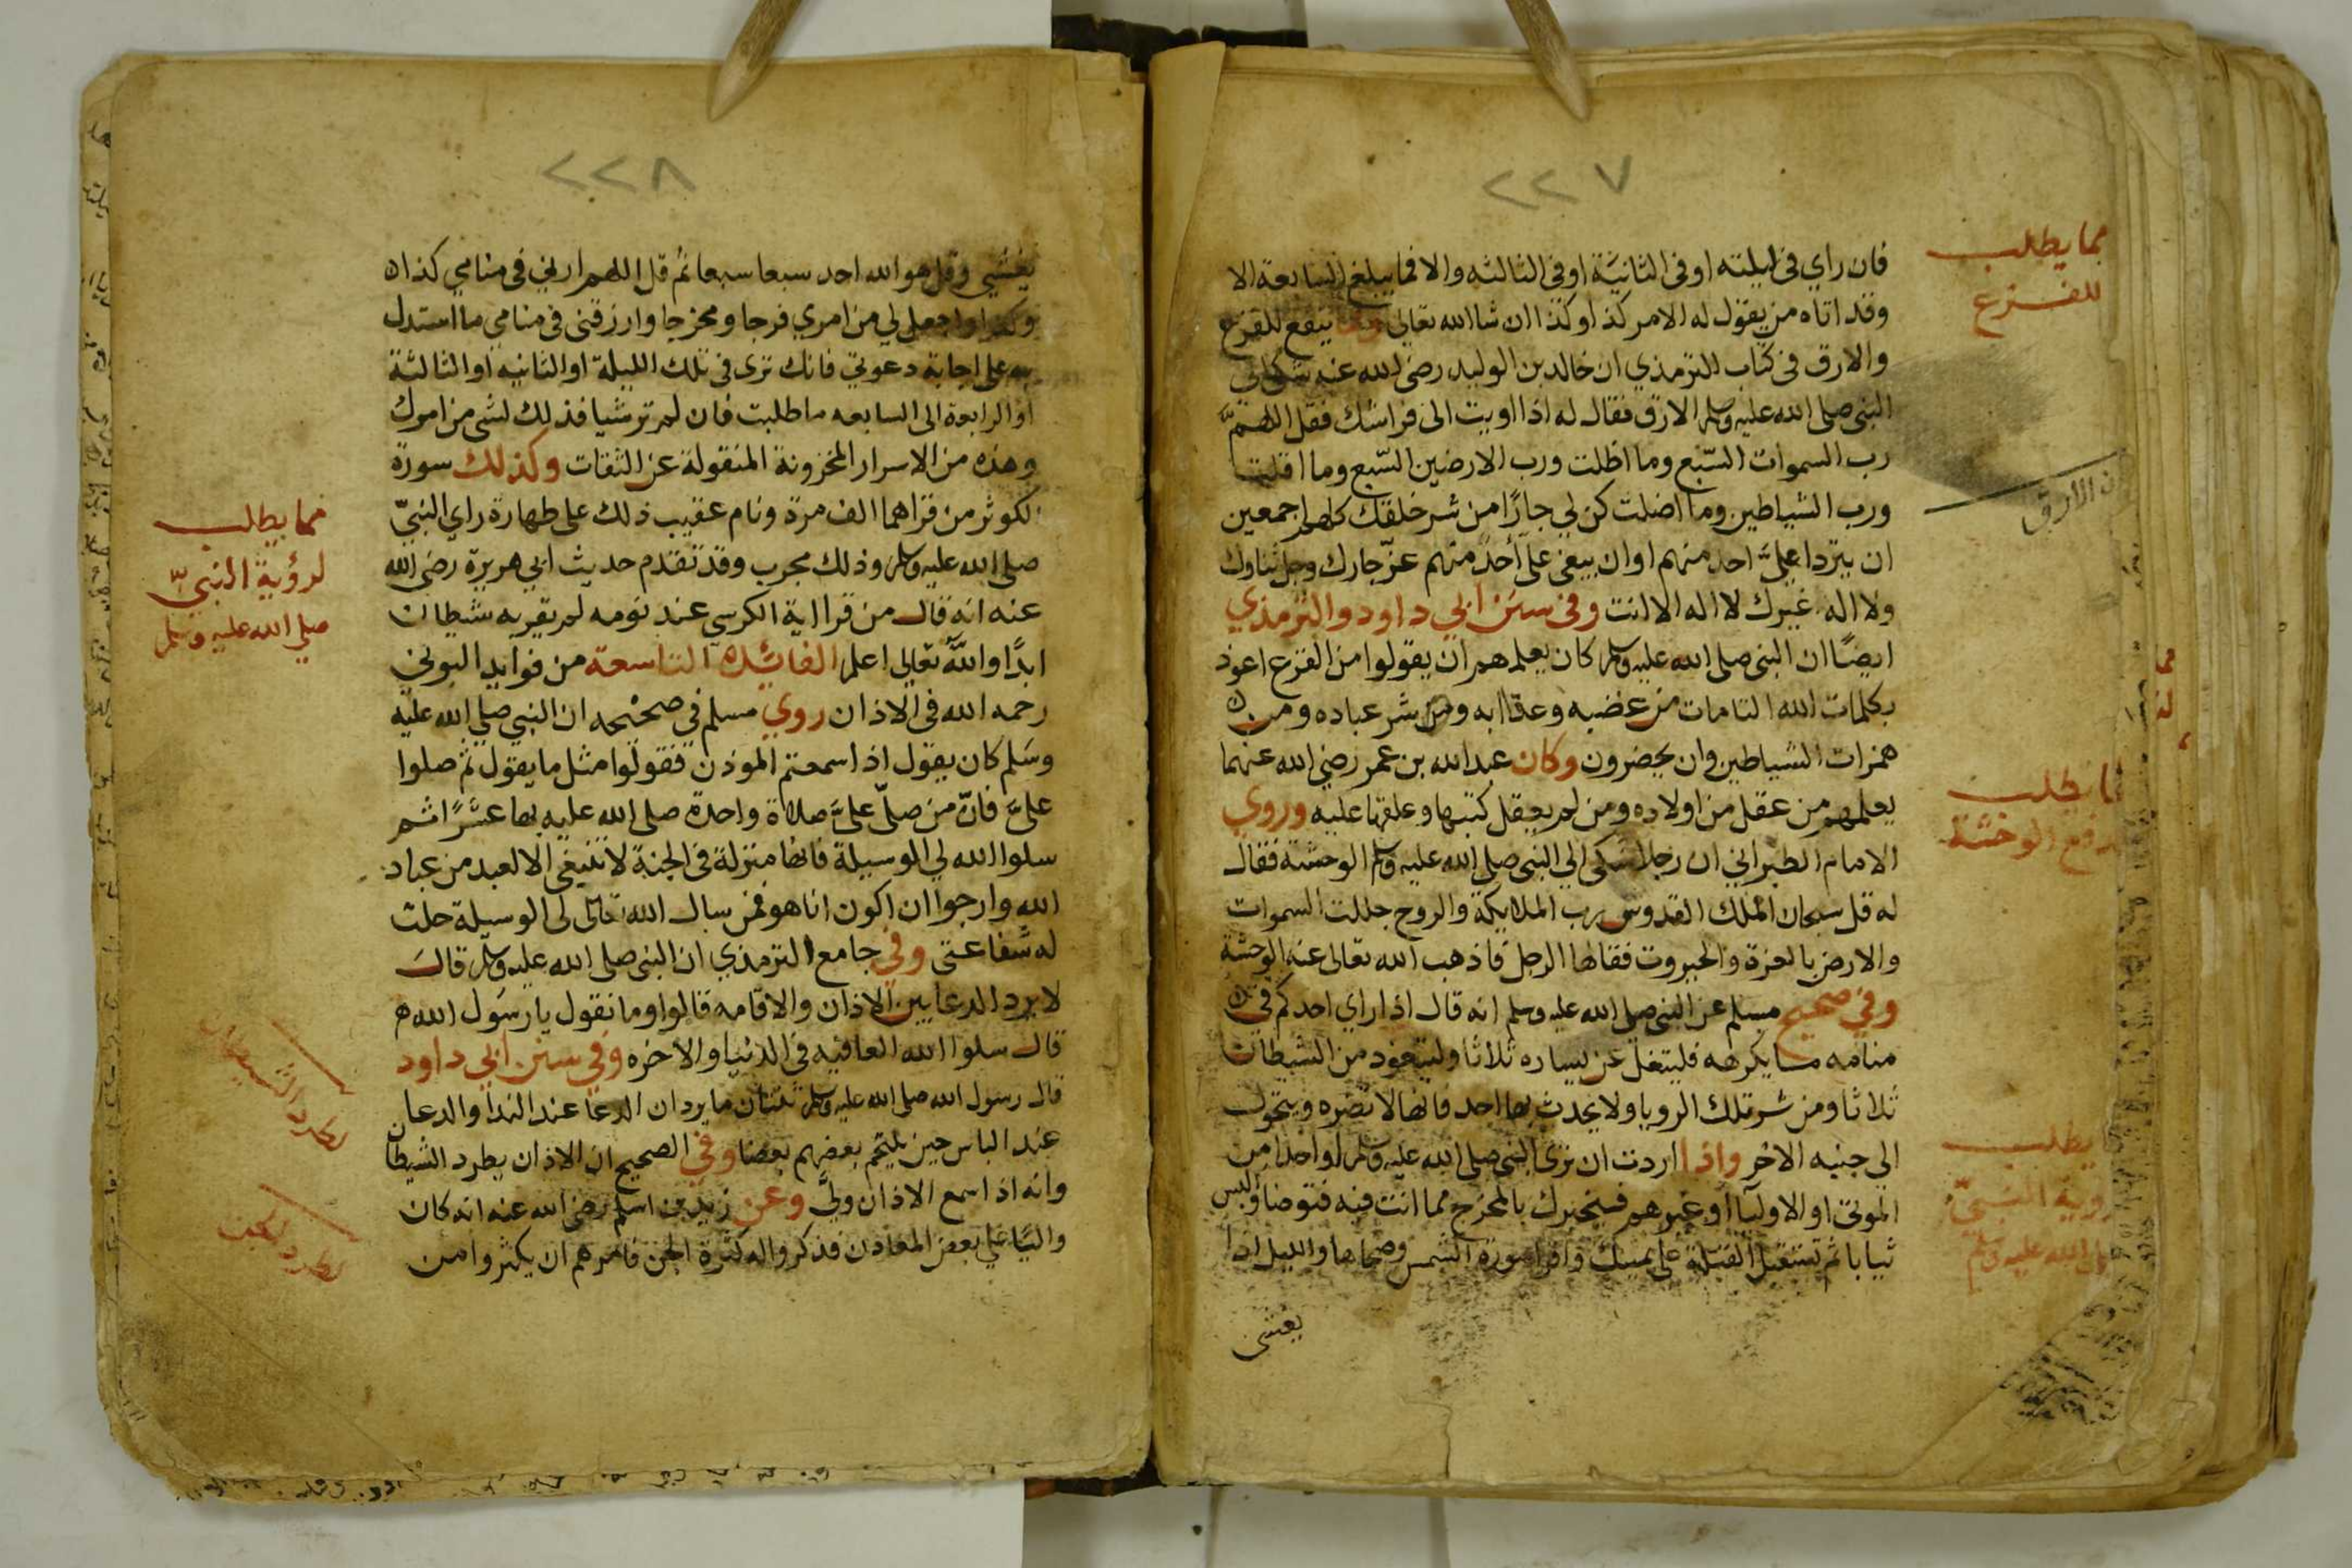 ٢٢٧
فان راي في ليلته او في الثانية او في الثالثه والا فما يبلغ السابعة الا
وقد اتاه من يقول له الامر كذا وكذا ان شا الله تعالى ومما ينفع للفزع
والارق في كتاب الترمذي ان خالد بن الوليد رضي الله عنه شكى الي
النبي صلى الله عليه وسلم الارق فقال له اذا اويت الى فراشك فقل اللهم
رب السموات السبع وما اظلت ورب الارضين السبع وما اقلت
ورب الشياطين وما اضلت كن لي جارا من شر خلقك كلهم اجمعين
ان يتردا على احد منهم او ان يبغى على احد منهم عز جارك وجل ثناوك
ولا اله غيرك لا اله الا انت وفي سنن ابي داود والترمذي
ايضا ان النبي صلى الله عليه وسلم كان يعلمهم ان يقولوا من الفزع اعوذ
بكلمات الله التامات من غضبه وعقابه ومن شر عباده ومن
همزات الشياطين وان يحضرون وكان عبد الله بن عمر رضي الله عنهما
يعلمهم من عقل من اولاده ومن لم يعقل كتبها وعلقها عليه وروي
الامام الطبراني ان رجلا شكى الي النبي صلى الله عليه وسلم الوحشة فقال
له قل سبحان الملك القدوس رب الملايكة والروح جللت السموات
والارض بالعزة والجبروت فقالها الرجل فاذهب الله تعالى عنه الوحشة
وفي صحيح مسلم عن النبي صلى الله عليه وسلم انه قال اذا راي احدكم في
منامه ما يكرهه فليتفل عن يساره ثلاثا وليتعوذ من الشيطان
ثلاثا ومن شر تلك الرويا ولا يحدث بها احد فانها لا تضره ويتحول
الى جنبه الاخر واذا اردت ان ترى النبي صلى الله عليه وسلم او احدا من
الموتى او الاوليآ او غيرهم فيخبرك بالمخرج مما انت فيه فتوضا والبس
ثيابا ثم تستقبل القبلة على يمينك واقرا سورة الشمس وضحاها والليل اذا
يغشى
مما يطلب
للفزع
الارق
يطلب
الوحشة
يطلب
روية النبي
الله عليه وسلم
٢٢٨
يغشي وقل هو الله احد سبعا سبعا ثم قل اللهم ارني في منامي كذا
وكذا واجعل لي من امري فرجا ومخرجا وارزقني في منامي ما استدل
به على اجابة دعوتي فانك ترى في تلك الليلة او الثانيه او الثالثة
او الرابعة الى السابعه ما طلبت فان لم تر شيا فذلك لشى من امورك
وهذه من الاسرار المخزونة المنقولة عن الثقات وكذلك سورة
الكوثر من قراهما الف مرة ونام عقيب ذلك على طهارة راي النبي
صلى الله عليه وسلم وذلك مجرب وقد تقدم حديث ابي هريرة رضي الله
عنه انه قال من قرا اية الكرسي عند نومه لم يقربه شيطان
ابدا والله تعالى اعلم الفائدة التاسعة من فوايد البوني
رحمه الله في الاذان روي مسلم في صحيحه ان النبي صلى الله عليه
وسلم كان يقول اذا سمعتم الموذن فقولوا مثل ما يقول ثم صلوا
على فان من صلى على صلاة واحدة صلى الله عليه بها عشرا ثم
سلوا الله لي الوسيلة فانها منزلة في الجنة لا تنبغي الا لعبد من عباد
الله وارجوا ان اكون انا هو فمن سال الله تعالى لى الوسيلة حلت
له شفاعتي وفي جامع الترمذي ان النبي صلى الله عليه وسلم قال
لا يرد الدعا بين الاذان والاقامه قالوا وما نقول يا رسول الله
قال سلوا الله العافيه في الدنيا والاخره وفي سنن ابي داود
قال رسول الله صلى الله عليه وسلم ثنتان ما يردان الدعا عند الندا والدعا
عند الباس حين يلتحم بعضهم بعضا وفي الصحيح ان الاذان يطرد الشيطان
وانه اذا سمع الاذان ولى وعن زيد بن اسلم رضي الله عنه انه كان
واليا على بعض المعادن فذكروا له كثرة الجن فامرهم ان يكثروا من
مما يطلب
لرؤية النبي
صلى الله عليه وسلم
لطرد الشيطان
لطرد الجن